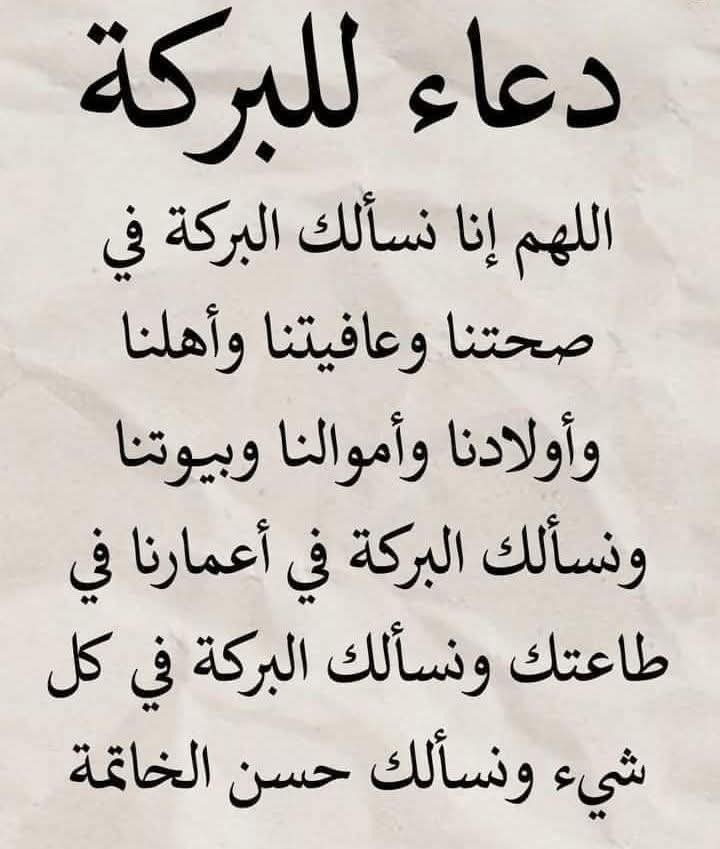 دعاء للبركة
اللهم إنا نسألك البركة في
صحتنا وعافيتنا وأهلنا
وأولادنا وأموالنا وبيوتنا
ونسألك البركة في أعمارنا في
طاعتك ونسألك البركة في كل
شيء ونسألك حسن الخاتمة